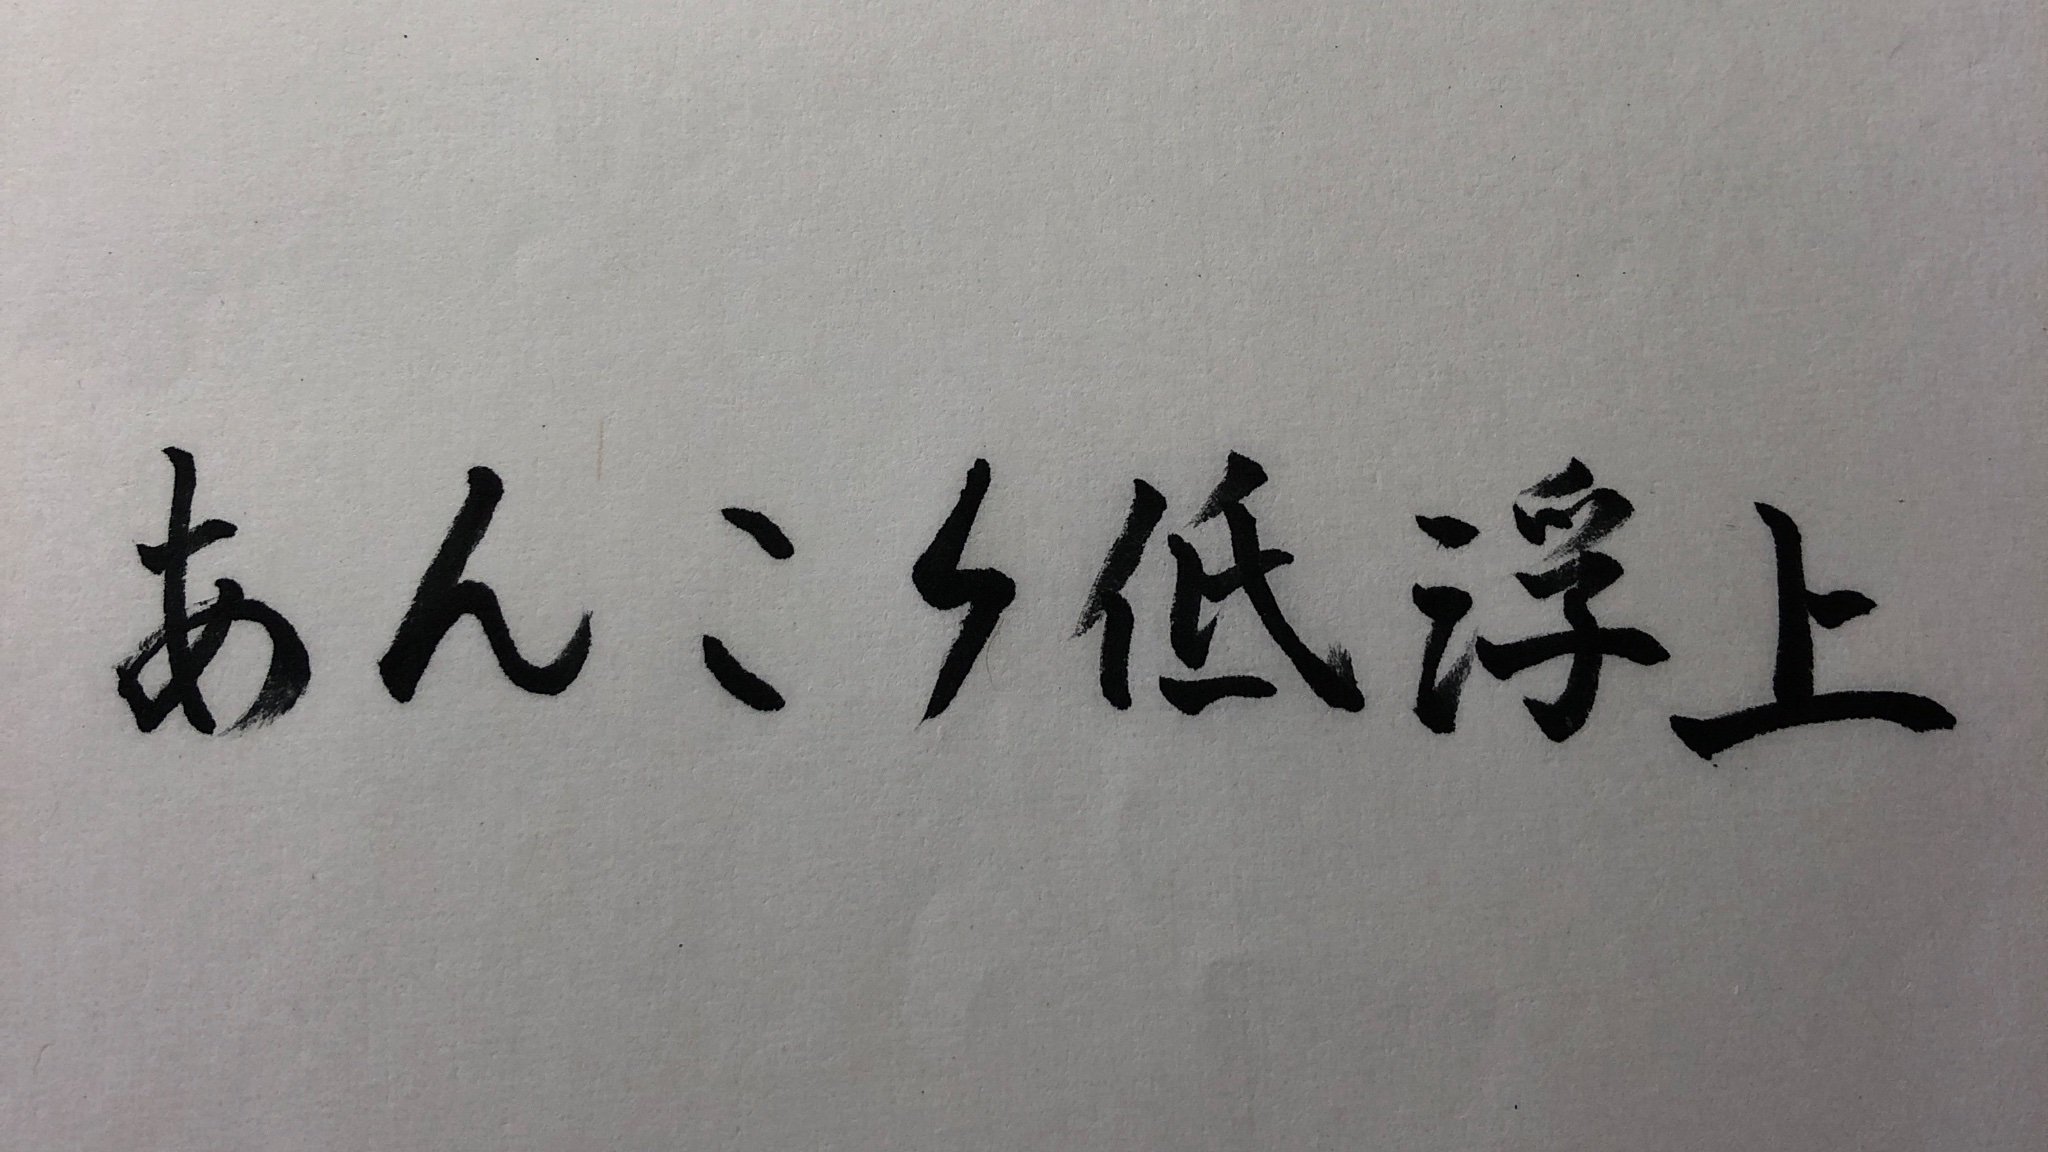 あんこϟ低浮上